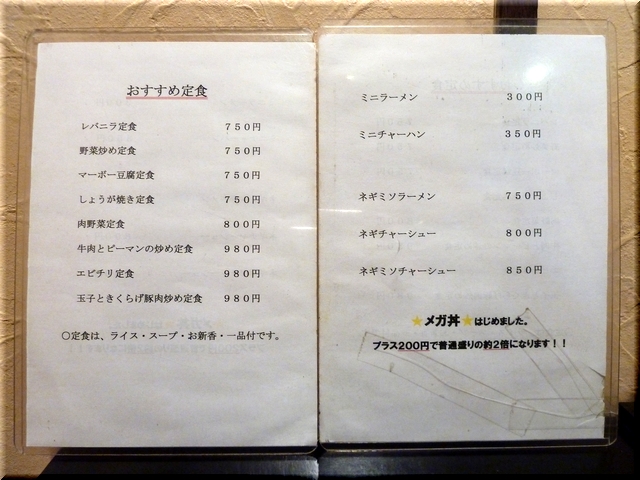 おすすめ定食
レバニラ定食 750円
野菜炒め定食 750円
マーボー豆腐定食 750円
しょうが焼き定食 750円
肉野菜定食 800円
牛肉とピーマンの炒め定食 980円
エビチリ定食 980円
玉子ときくらげ豚肉炒め定食 980円
〇定食は、ライス・スープ・お新香・一品付です。
ミニラーメン 300円
ミニチャーハン 350円
ネギミソラーメン 750円
ネギチャーシュー 800円
ネギミソチャーシュー 850円
★メガ丼★はじめました。
プラス200円で普通盛りの約2倍になります!!